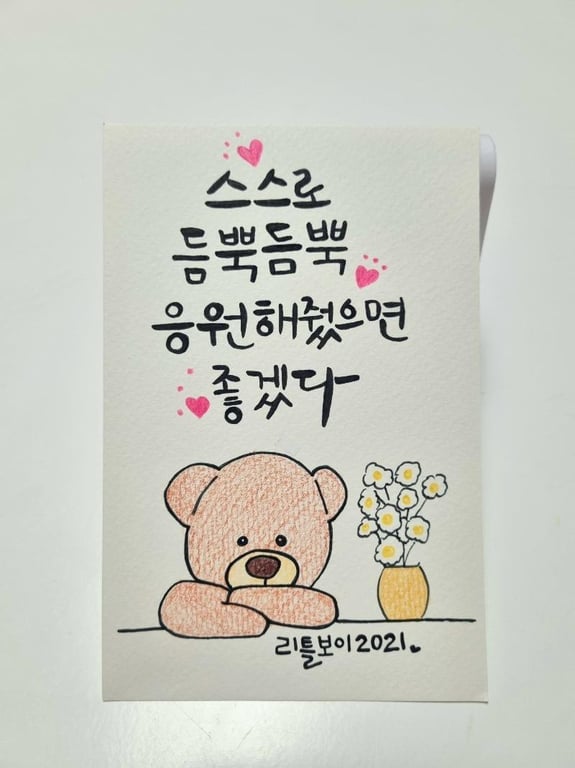 스스로
듬뿍듬뿍
응원해줬으면
좋겠다
리틀보이2021